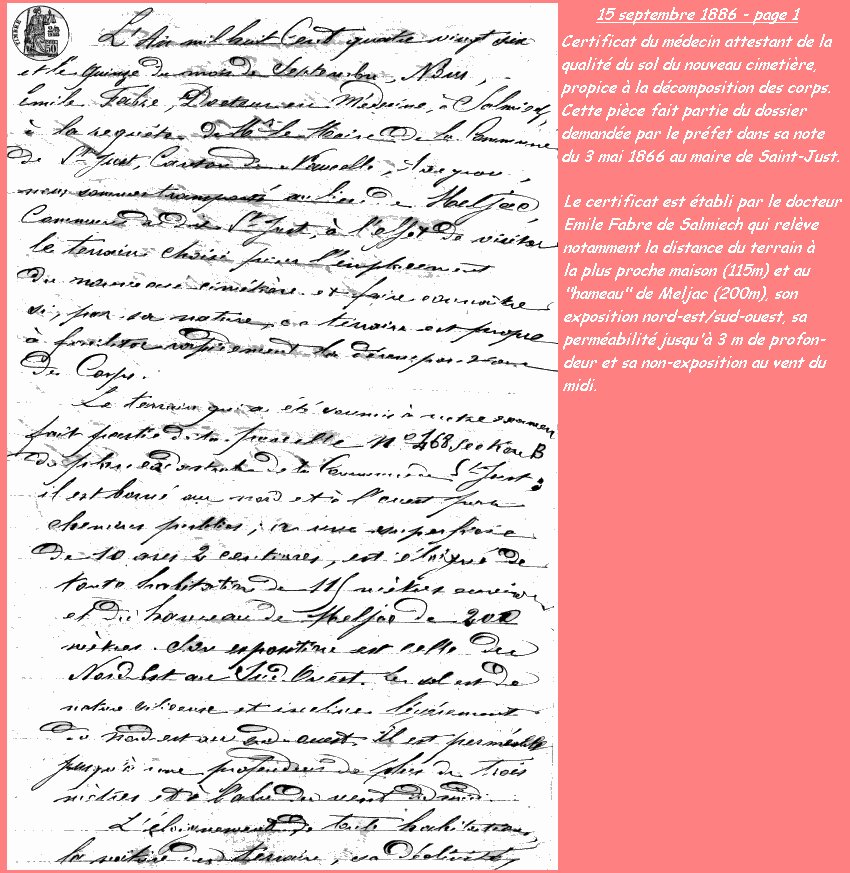 L'An mil huit Cent quatre vingt six
et le quinze du mois de Septembre, Nous,
Emile Fabre, Docteur en Médecine, à Salmiech,
à la requête de Mr le Maire de la Commune
de St Just, Canton de Naucelle, Aveyron,
nous sommes transporté au lieu de Meljac,
Commune de dit St Just, à l'effet de visiter
le terrain choisi pour l'emplacement
du nouveau cimetière et faire connaître
si, par sa nature, ce terrain est propre
à faciliter rapidement la décomposition
des Corps.
Le terrain qui a été soumis à notre examen
fait partie de la parcelle No 468 section B
du plan cadastral de la Commune de St Just;
il est borné au nord et à l'ouest par
chemins publics; a une superficie
de 10 ares 2 centiares, est éloigné de
toute habitation de 115 mètres environ
et du hameau de Meljac de 200
mètres. Son exposition est celle du
Nord Est au Sud Ouest. Le sol est de
nature siliceuse et incline légèrement
du nord est au sud ouest. Il est perméable
jusqu'à une profondeur de plus de trois
mètres et à l'abri du vent du midi.
L'éloignement de toute habitation,
la nature du terrain, sa déclivité
15 septembre 1886 - page 1
Certificat du médecin attestant de la
qualité du sol du nouveau cimetière,
propice à la décomposition des corps.
Cette pièce fait partie du dossier
demandée par le préfet dans sa note
du 3 mai 1866 au maire de Saint-Just.
Le certificat est établi par le docteur
Emile Fabre de Salmiech qui relève
notamment la distance du terrain à
la plus proche maison (115m) et au
"hameau" de Meljac (200m), son
exposition nord-est/sud-ouest, sa
perméabilité jusqu'à 3 m de profon-
deur et sa non-exposition au vent du
midi.